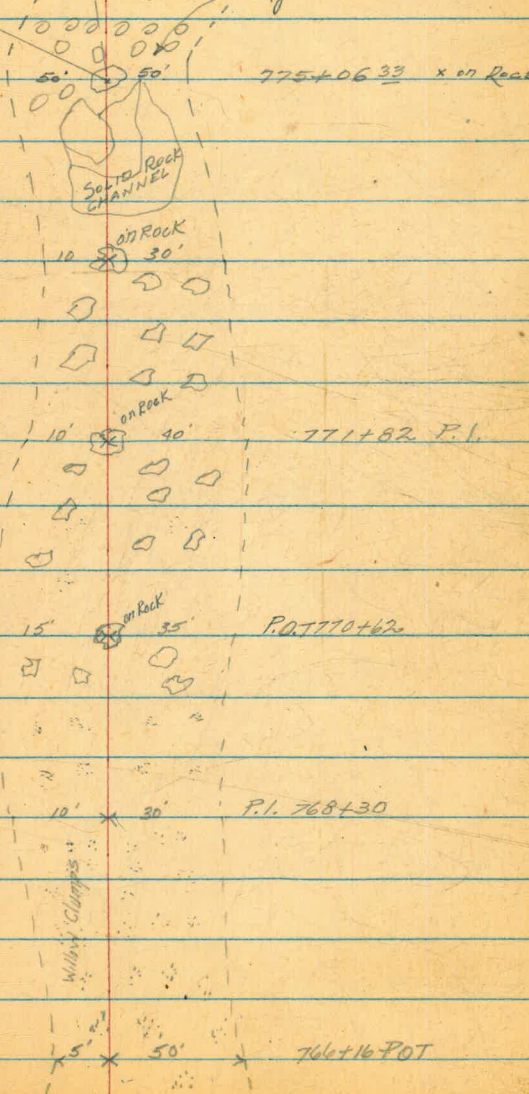 50' 50' 775+06 33 x on Rock
SOLID ROCK
CHANNEL
on ROCK
10 30'
on Rock
10' 40' 771+82 P.I.
on Rock
15' 35' P.O.T 770+62
10' 30' P.I. 768+30
Willow Clumps
5' 50' 766+16 POT